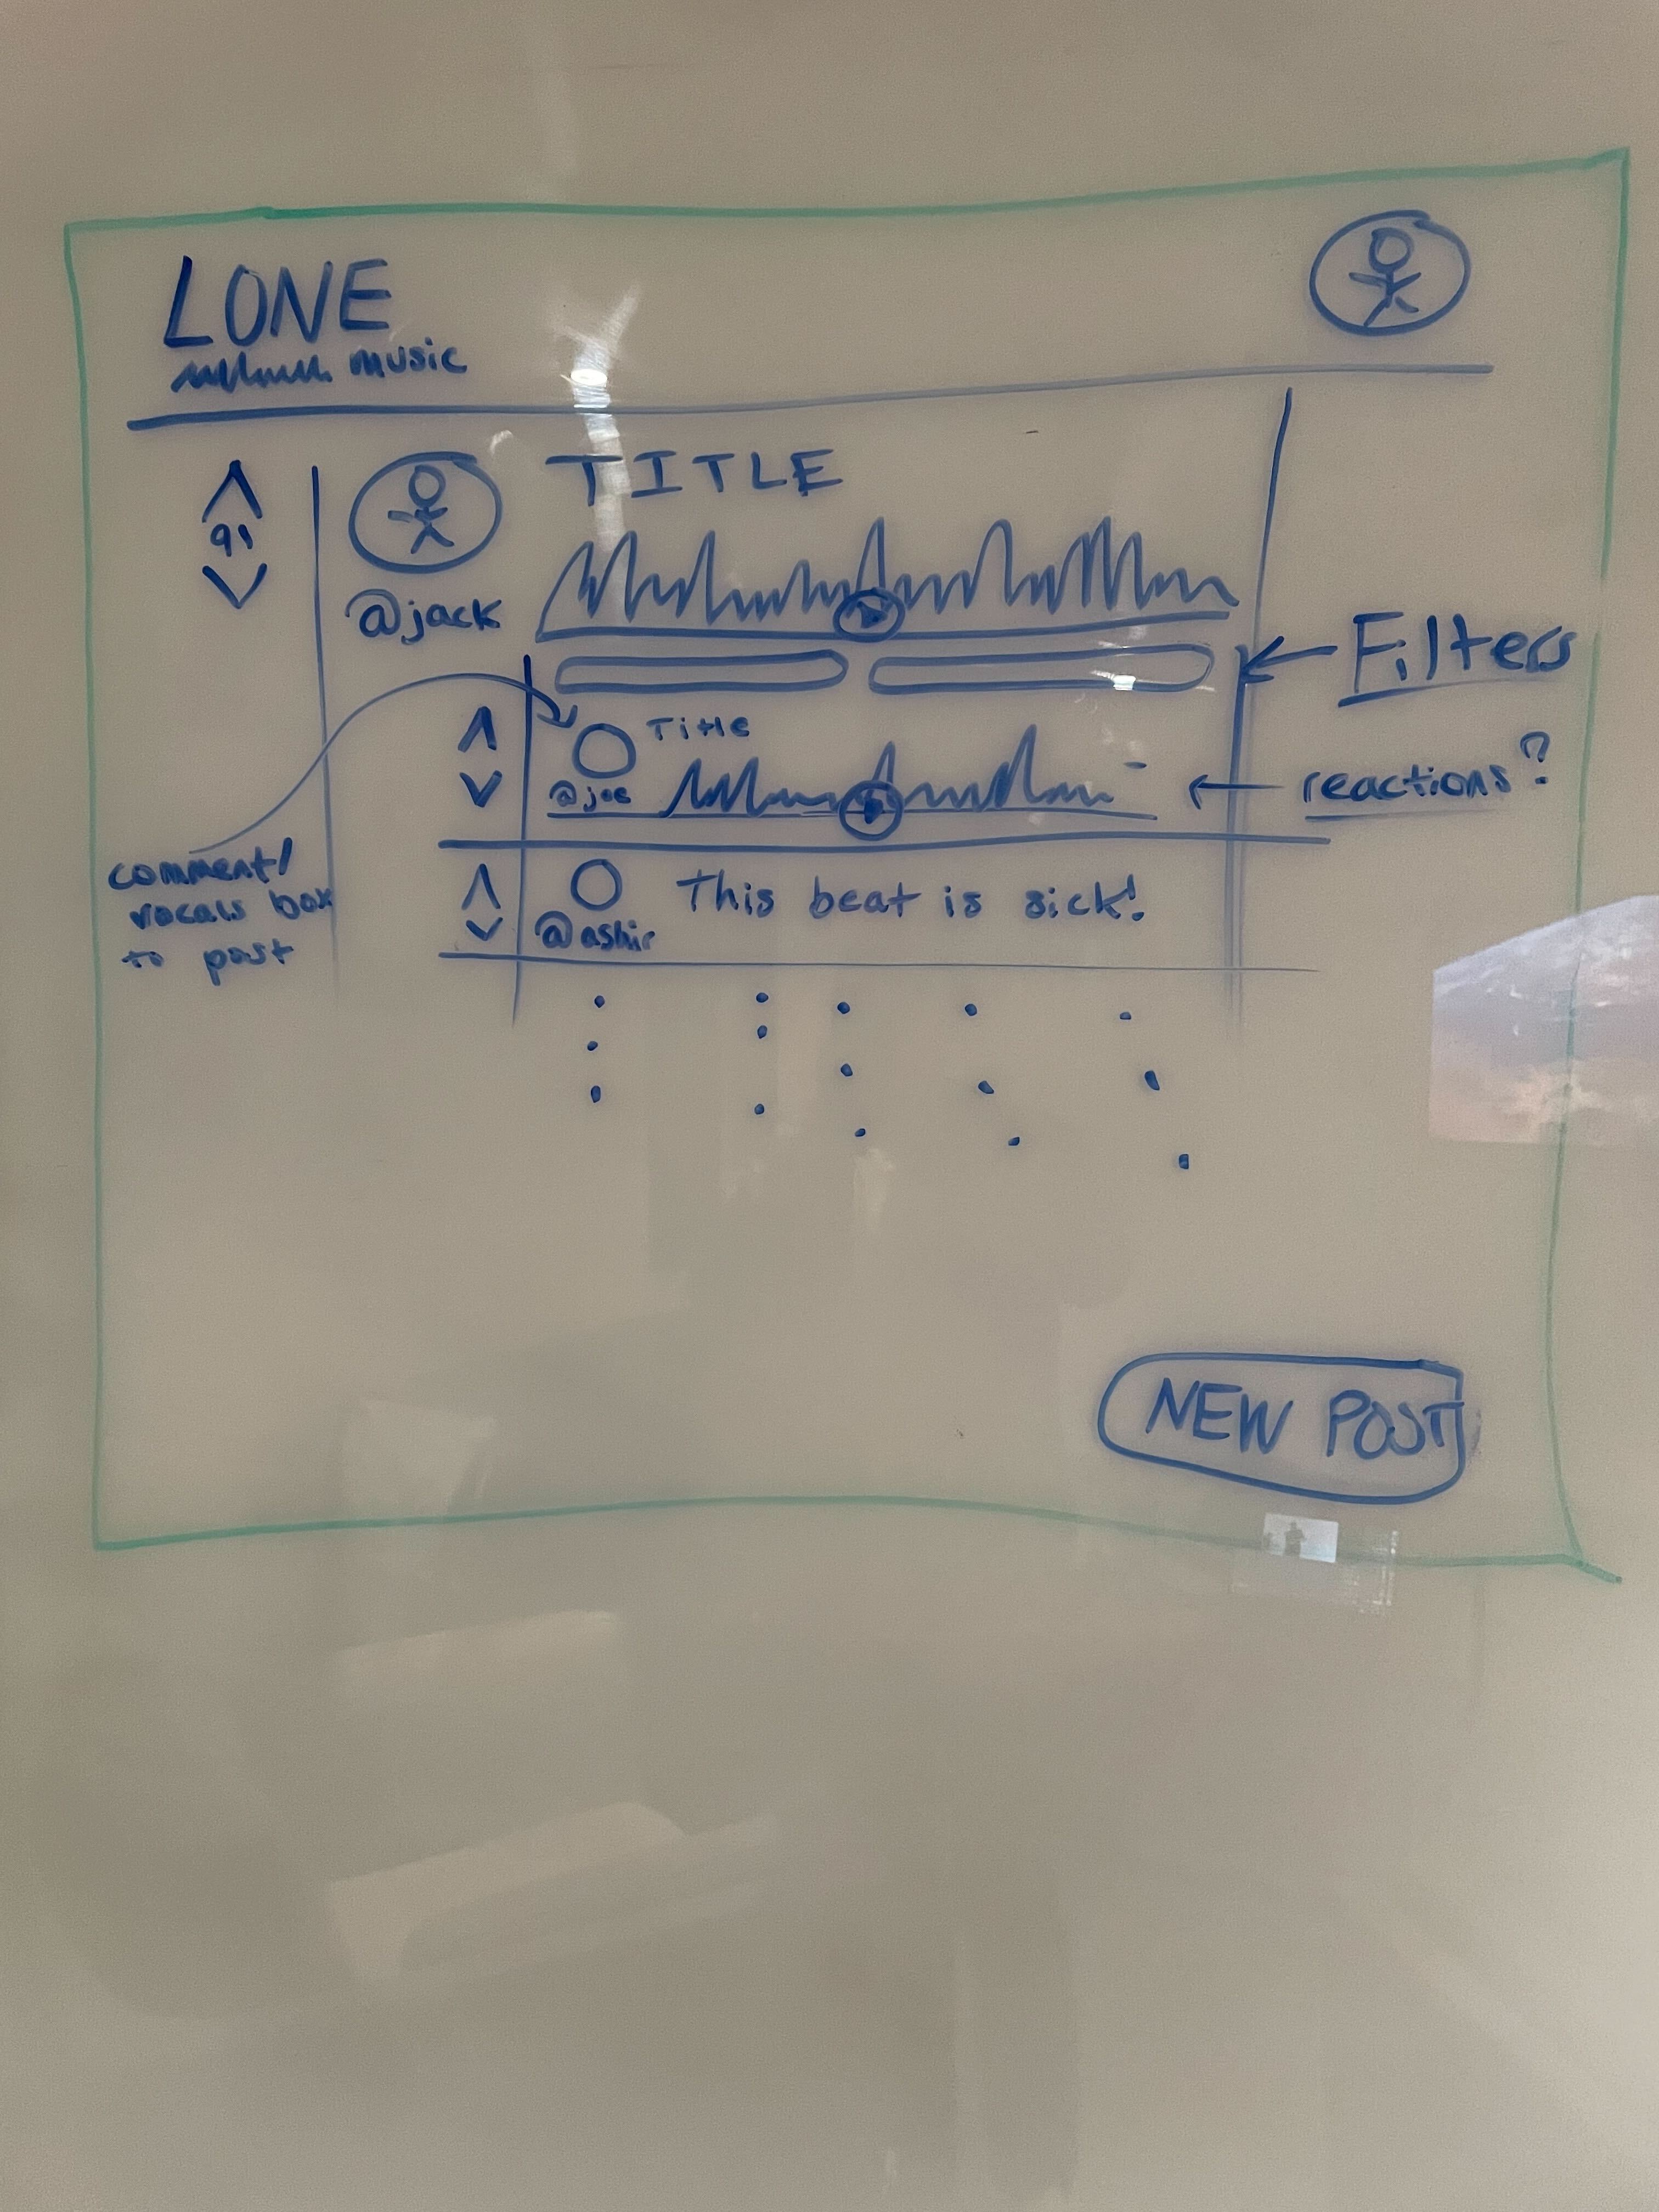 LONE
music
TITLE
91
@jack
Filters
Title
@joe
reactions?
comment/
vocals box
to post
This beat is sick!
@ashir
NEW POST